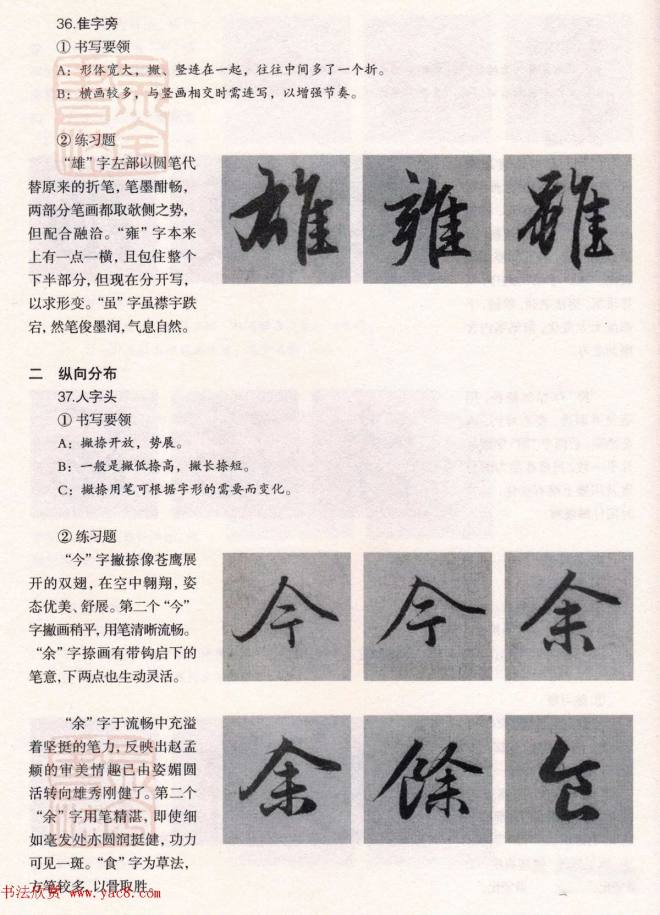 36.隹字旁
①书写要领
A：形体宽大，撇、竖连在一起，往往中间多了一个折。
B：横画较多，与竖画相交时需连写，以增强节奏。
②练习题
“雄”字左部以圆笔代
替原来的折笔，笔墨酣畅，
两部分笔画都取欹侧之势，
但配合融洽。“雍”字本来
上有一点一横，且包住整个
下半部分，但现在分开写，
以求形变。“虽”字虽襟宇跌
宕，然笔俊墨润，气息自然。
雄 雍 雖
二 纵向分布
37.人字头
①书写要领
A：撇捺开放，势展。
B：一般是撇低捺高，撇长捺短。
C：撇捺用笔可根据字形的需要而变化。
②练习题
“今”字撇捺像苍鹰展
开的双翅，在空中翱翔，姿
态优美、舒展。第二个“今”
字撇画稍平，用笔清晰流畅。
“余”字捺画有带钩启下的
笔意，下两点也生动灵活。
今 今 余
“余”字于流畅中充溢
着坚挺的笔力，反映出赵孟
頫的审美情趣已由姿媚圆
活转向雄秀刚健了。第二个
“余”字用笔精湛，即使细
如毫发处亦圆润挺健，功力
可见一斑。“食”字为草法，
方笔较多，以骨取胜。
余 餘 食
书法欣赏 www.yac8.com